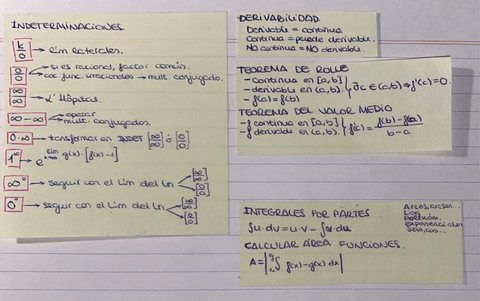 INDETERMINACIONES
k/0 → Lim laterales.
0/0 → si es racional, factor común.
→ coc func. irracionales → mult. conjugado.
∞/∞ → L'Hôpital.
∞-∞ → operar
→ mult. conjugados.
0·∞ → transformar en INDET [∞/∞] ó [0/0]
1^∞ → e^lim g(x)·[f(x)-1]
∞^0 → seguir con el Lim del Ln [∞/∞] [0/0]
0^0 → seguir con el Lim del Ln [∞/∞] [0/0]
DERIVABILIDAD
Derivable = continua
Continua = puede derivable.
No continua = NO derivable.
TEOREMA DE ROLLE
- continua en [a,b]
- derivable en (a,b). } ∃c ∈(a,b) ⇒ f'(c)=0.
- f(a)=f(b)
TEOREMA DEL VALOR MEDIO
- f continua en [a,b]
- f derivable en (a,b). } f'(c)= f(b)-f(a) / b-a
INTEGRALES POR PARTES
∫u·dv=u·v-∫v·du
CALCULAR ÁREA FUNCIONES.
A=|∫ f(x)-g(x) dx|
Arcos, arcsen...
Log
Polinóm.
Exponenciales
Sen, cos...